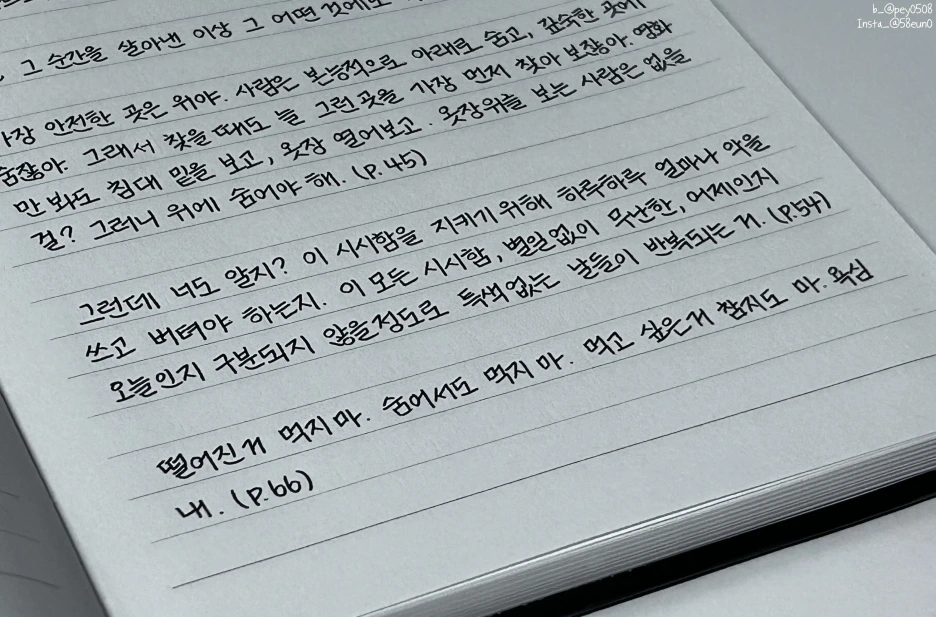 b_@pey0508
Insta_@58eun0
그 순간을 살아낸 이상 그 어떤 것에도
가장 안전한 곳은 위야. 사람은 본능적으로 아래로 숨고, 깊숙한 곳에
숨잖아. 그래서 찾을 때도 늘 그런 곳을 가장 먼저 찾아 보잖아. 영화
만 봐도 침대 밑을 보고, 옷장 열어보고. 옷장위를 보는 사람은 없을
걸? 그러니 위에 숨어야 해. (p.45)
그런데 너도 알지? 이 시시함을 지키기 위해 하루하루 얼마나 악을
쓰고 버텨야 하는지. 이 모든 시시함, 별일없이 무난한, 어제인지
오늘인지 구분되지 않을정도로 특색없는 날들이 반복되는 거. (p.54)
떨어진거 먹지마. 숨어서도 먹지마. 먹고 싶은거 참지도 마. 욕심
내. (p.66)